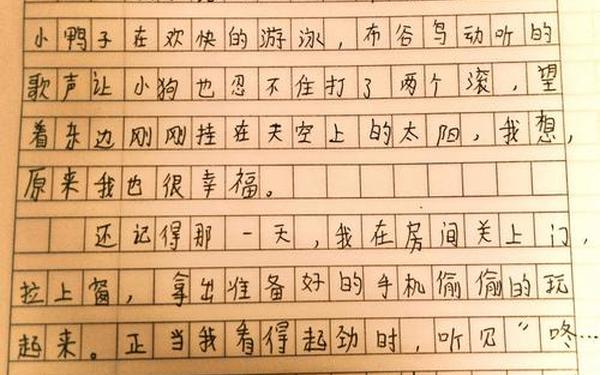 小鸭子在欢快的游泳，布谷鸟动听的
歌声让小狗也忍不住打了两个滚，望
着东边刚刚挂在天空上的太阳，我想，
原来我也很幸福。
还记得那一天，我在房间关上门，
拉上窗，拿出准备好的手机偷偷的玩
起来。正当我看得起劲时，听见"咚…